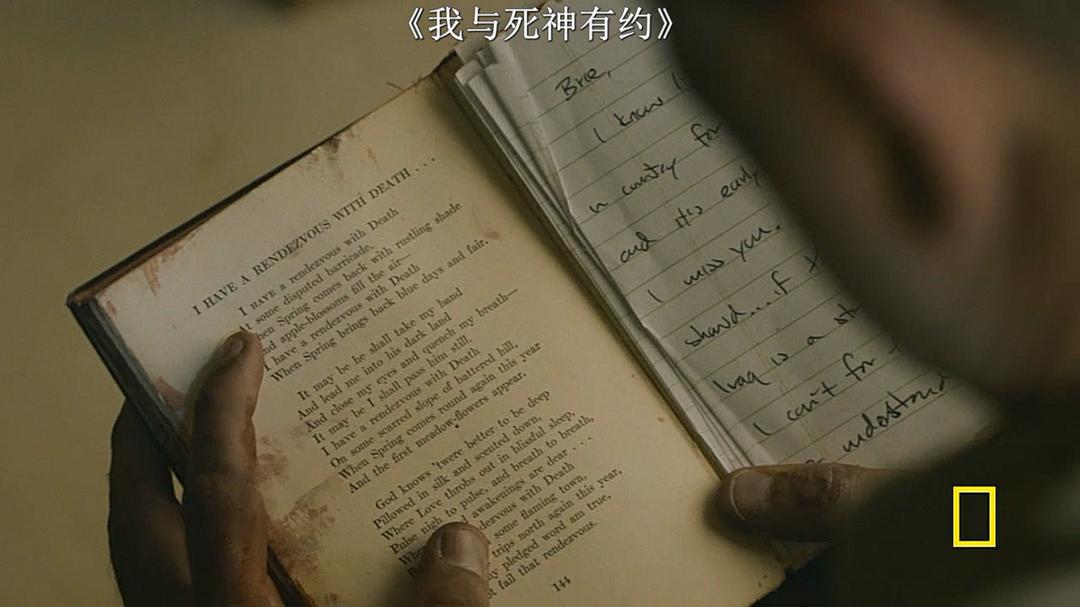 《我与死神有约》
I HAVE A RENDEZVOUS WITH DEATH . . .
I HAVE a rendezvous with Death
At some disputed barricade,
hen Spring comes back with rustling shade
nd apple-blossoms fill the air—
I have a rendezvous with Death
When Spring brings back blue days and fair.
It may be he shall take my hand
And lead me into his dark land
And close my eyes and quench my breath—
It may be I shall pass him still.
I have a rendezvous with Death
On some scarred slope of battered hill,
When Spring comes round again this year
And the first meadow-flowers appear.
God knows 'twere better to be deep
Pillowed in silk and scented down,
Where Love throbs out in blissful sleep,
Pulse nigh to pulse, and breath to breath,
awakenings are dear . . .
dezvous with Death
some flaming town,
trips north again this year,
pledged word am true,
t fail that rendezvous.
144
Brie,
I know
country for
and it's early
I miss you.
shard...if
Iraq is a
I can't for
understand